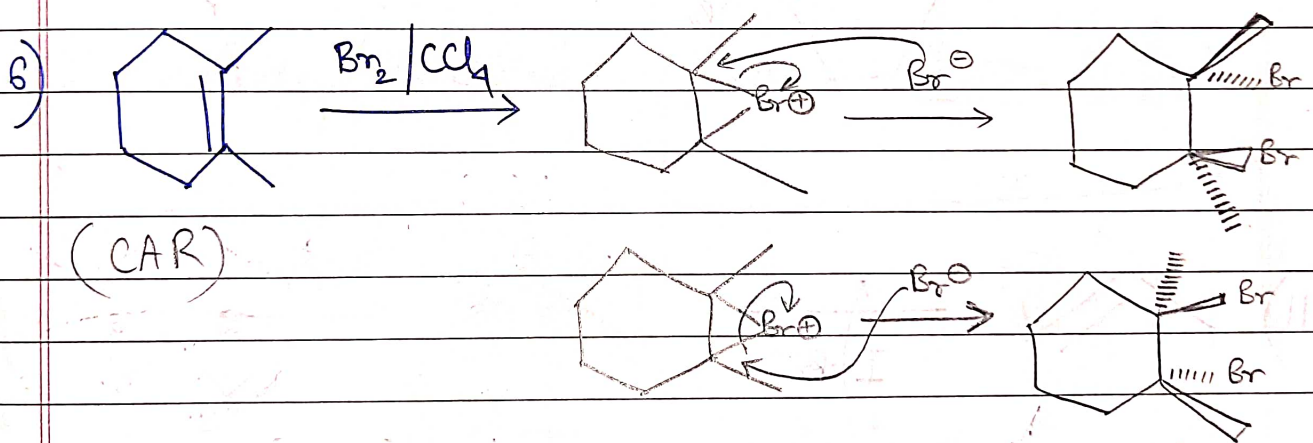 6)
Br₂/CCl₄
Br⊕
Br⊖
Br
Br
(CAR)
Br⊕
Br⊖
Br
Br